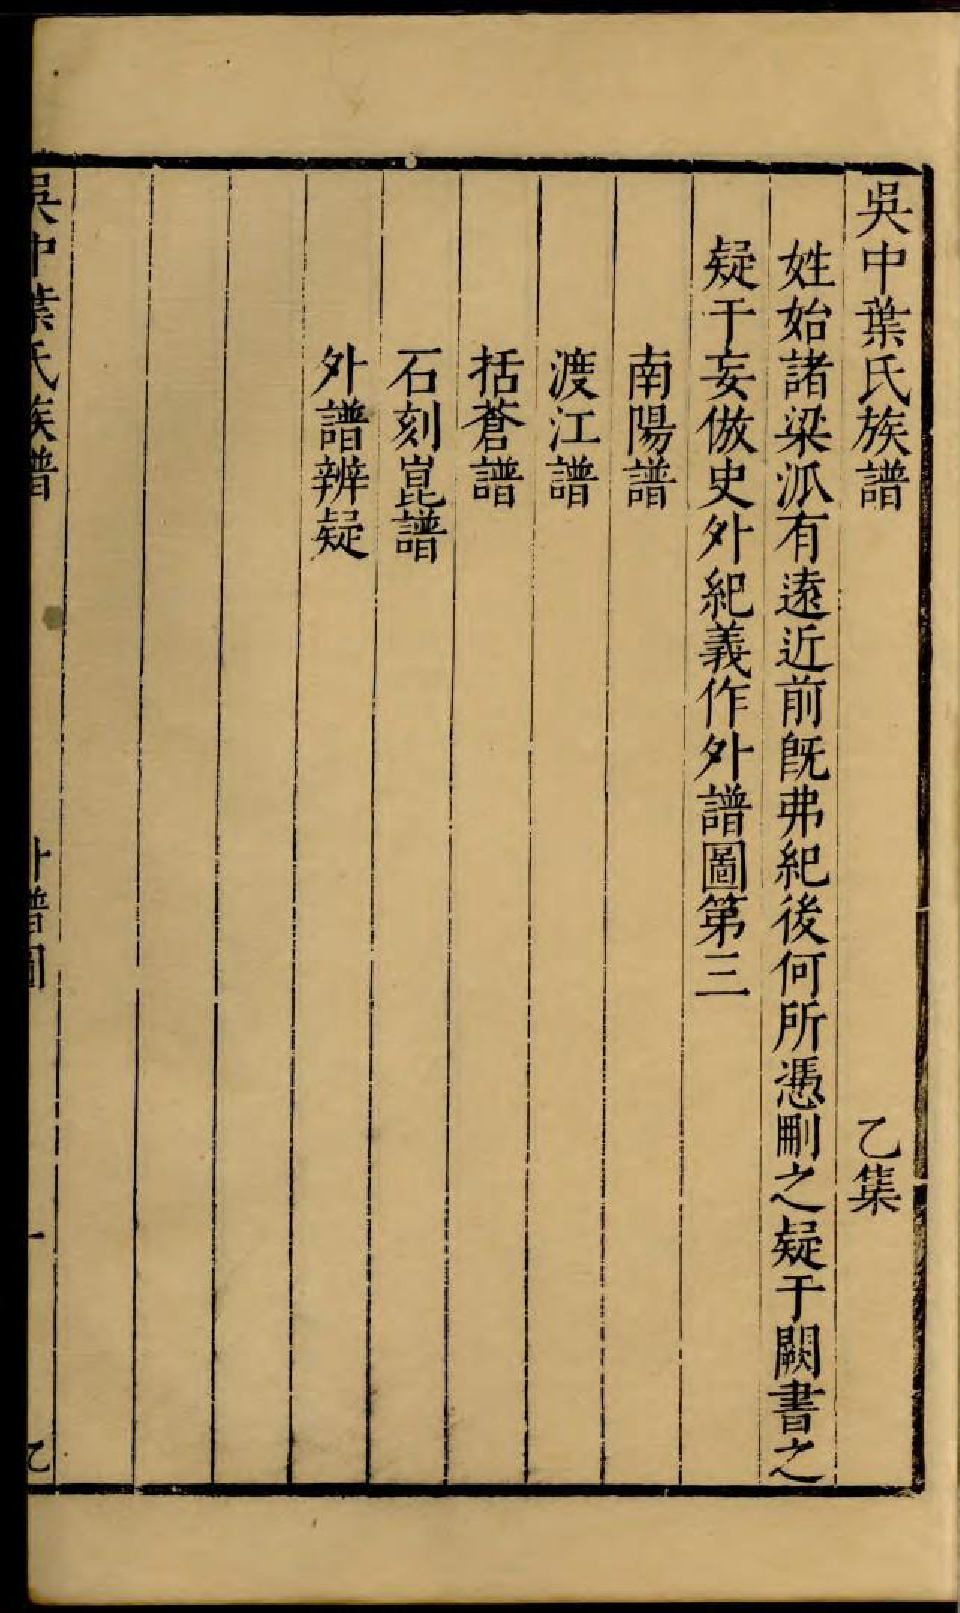 吳中葉氏族譜 乙集
姓始諸梁派有遠近前旣弗紀後何所憑刪之疑于闕書之
疑于妄倣史外紀義作外譜圖第三
南陽譜
渡江譜
括蒼譜
石刻崑譜
外譜辨疑
吳中葉氏族譜 外譜圖 一 乙